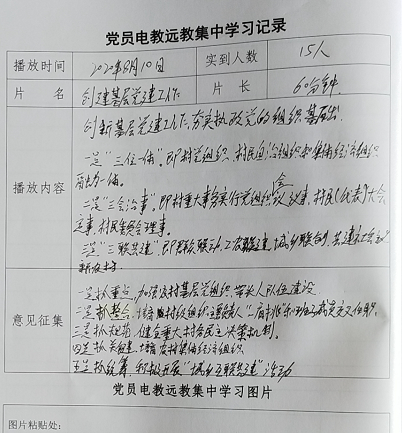 党员电教远教集中学习记录
播放时间 2020年8月10日 实到人数 15人
片 名 创建基层党建工作 片 长 60分钟
播放内容
创新基层党建工作,夯实执政党的组织基础
一是“三位一体”。即村党组织、村民自治组织和集体经济组织
二是“三会治事”。即村重大事务实行党组织会议事、村民(代表)大会
定事、村民委员会理事。
三是“三联共建”,即群众联动、工农联建、城乡联合
意见征集
一是抓重点,加强农村基层党组织带头人队伍建设
二是抓整合,
三是抓规范,健全重大村务民主决策机制。
四是抓关键,农村集体经济组织
五是抓统筹,积极开展“城乡互联共建”活动
党员电教远教集中学习图片
图片粘贴处: